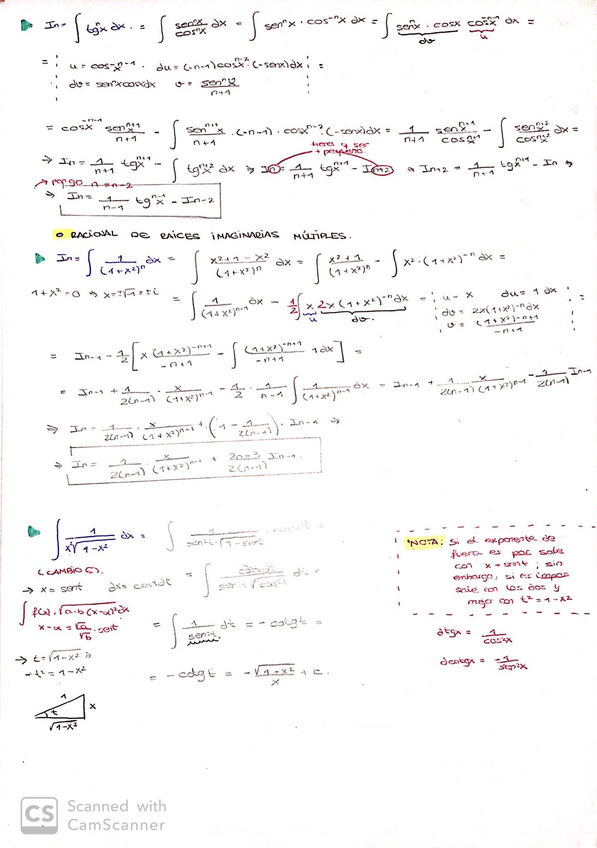 In = ∫ tgⁿx dx = ∫ senⁿx/cosⁿx dx = ∫ senⁿx · cos⁻ⁿx dx = ∫ senⁿx · cosx cos⁻ⁿ⁻¹x dx =
dv u
= u = cos⁻ⁿ⁻¹x · du = (-n-1)cosx⁻ⁿ⁻² · (-senx)dx =
dv = senⁿx cosx dx v = senⁿ⁺¹x/n+1
= cos⁻ⁿ⁻¹x senⁿ⁺¹x/n+1 - ∫ senⁿ⁺¹x/n+1 · (-n-1) · cosx⁻ⁿ⁻² · (-senx)dx = 1/n+1 senxⁿ⁺¹/cosxⁿ⁺¹ - ∫ senxⁿ⁺²/cosxⁿ⁺² dx =
tiene q ser + pequeño
⇒ In = 1/n+1 tgxⁿ⁺¹ - ∫ tgxⁿ⁺² dx ⇒ In = 1/n+1 tgxⁿ⁺¹ - In+2 ⇒ In+2 = 1/n+1 tgxⁿ⁺¹ - In ⇒
→ pongo n = n-2
⇒ In = 1/n-1 tgxⁿ⁻¹ - In-2
○ RACIONAL DE RAÍCES IMAGINARIAS MÚLTIPLES.
In = ∫ 1/(1+x²)ⁿ dx = ∫ x²+1-x²/(1+x²)ⁿ dx = ∫ x²+1/(1+x²)ⁿ - ∫ x² · (1+x²)⁻ⁿ dx =
1+x²=0 ⇒ x=±√-1=±i = ∫ 1/(1+x²)ⁿ⁻¹ dx - 1/2 ∫ x 2x (1+x²)⁻ⁿ dx = u = x du = 1 dx =
u dv. dv = 2x(1+x²)⁻ⁿ dx
v = (1+x²)⁻ⁿ⁺¹/-n+1
= In-1 - 1/2 [ x (1+x²)⁻ⁿ⁺¹/-n+1 - ∫ (1+x²)⁻ⁿ⁺¹/-n+1 1dx ] =
= In-1 + 1/2(n-1) · x/(1+x²)ⁿ⁻¹ - 1/2 · 1/n-1 ∫ 1/(1+x²)ⁿ⁻¹ dx = In-1 + 1/2(n-1) x/(1+x²)ⁿ⁻¹ - 1/2(n-1) In-1
⇒ In = 1/2(n-1) · x/(1+x²)ⁿ⁻¹ + (1 - 1/2(n-1)) · In-1 ⇒
⇒ In = 1/2(n-1) · x/(1+x²)ⁿ⁻¹ + 2n-3/2(n-1) In-1.
∫ 1/x²√1-x² dx = ∫ 1/sen²t·√1-sen²t · cost dt =
(CAMBIO 5).
→ x = sent dx = costdt = ∫ costdt/sen²t√cos²t dt =
∫ f(x), √a-b(x-α)² dx
x-α = √a/√b · sent = ∫ 1/sen²t dt = -cotgt =
→ t = √1-x²
-t² = 1-x² = -cotgt = -√1-x²/x + c.
1 x t √1-x²
NOTA: Si el exponente de
fuera es par sale
con x = sent ; sin
embargo, si es impar
sale con los dos y
mejor con t² = 1-x²
dtgx = 1/cos²x
dcotgx = -1/sen²x
CS Scanned with
CamScanner